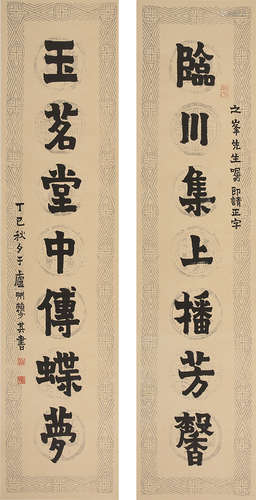 之峯先生囑即請正字
臨川集上播芳馨
玉茗堂中傳蝶夢
丁巳秋夕于盧
其書